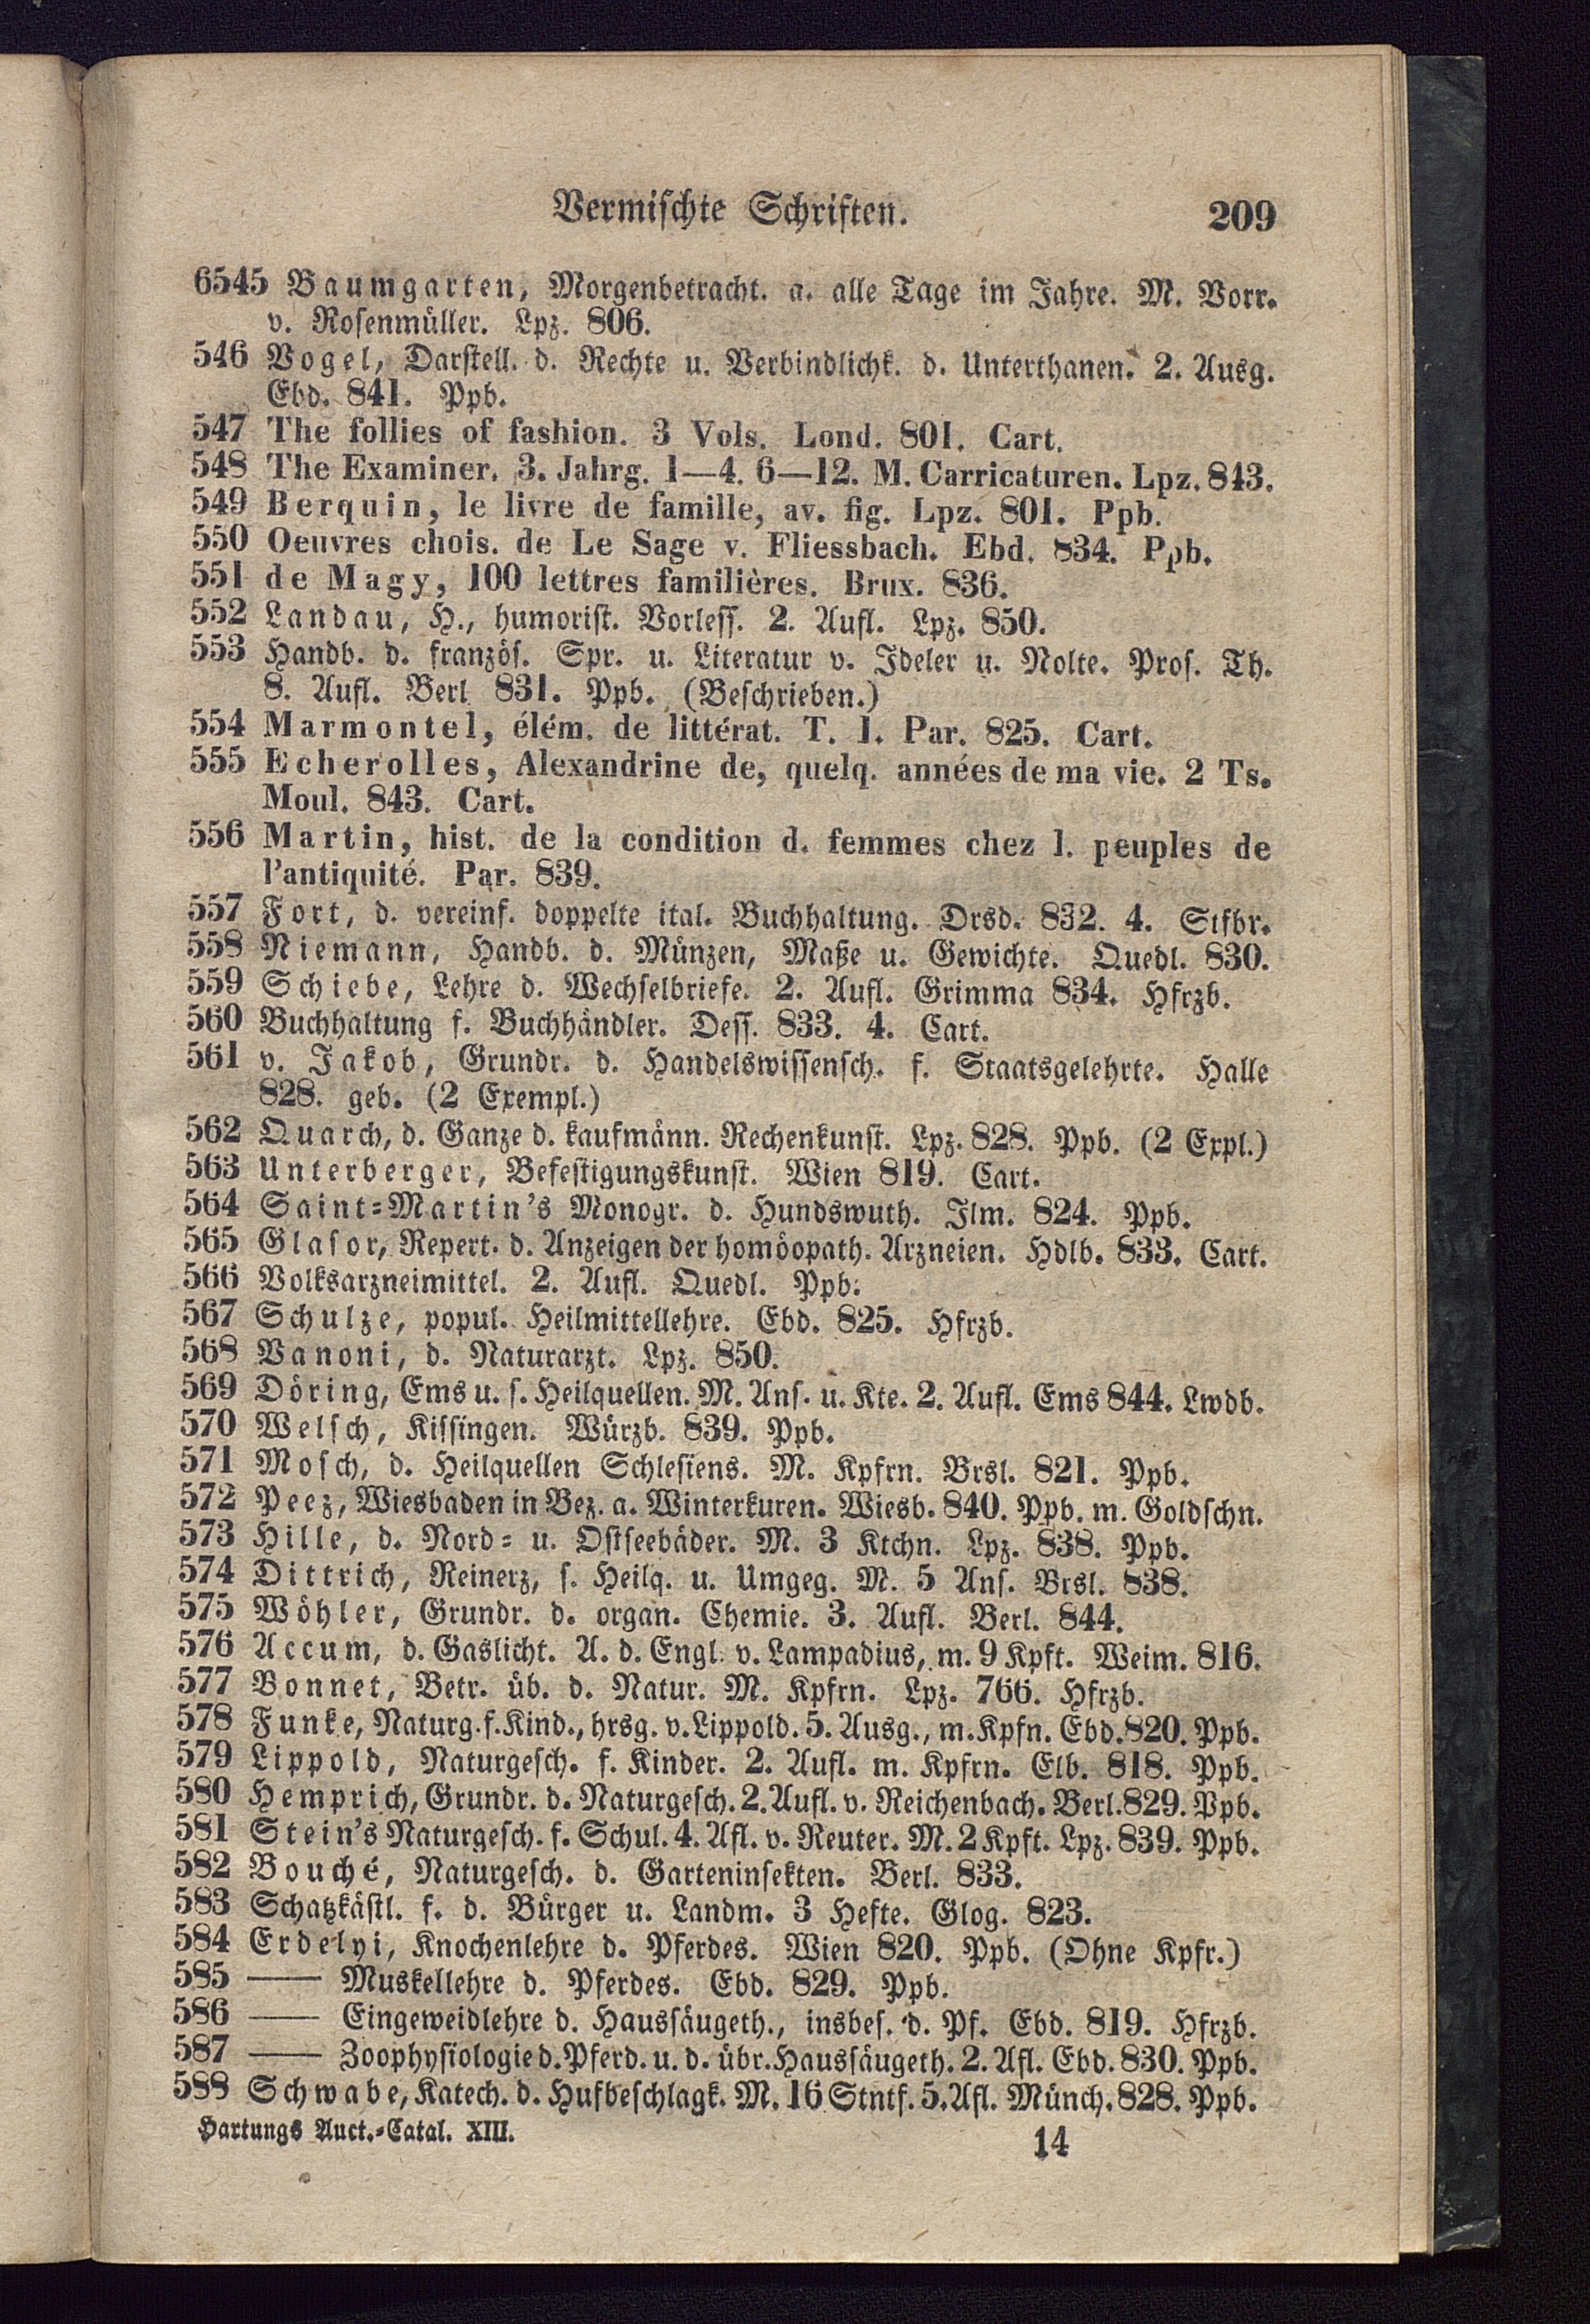 Vermischte Schriften. 209
6545 Baumgarten, Morgenbetracht. a. alle Tage im Jahre. M. Vorr.
v. Rosenmüller. Lpz. 806.
546 Vogel, Darstell. d. Rechte u. Verbindlichk. d. Unterthanen. 2. Ausg.
Ebd. 841. Ppb.
547 The follies of fashion. 3 Vols. Lond. 801. Cart.
548 The Examiner. 3. Jahrg. 1—4. 6—12. M. Carricaturen. Lpz. 843.
549 Berquin, le livre de famille, av. fig. Lpz. 801. Ppb.
550 Oeuvres chois. de Le Sage v. Fliessbach. Ebd. 834. Ppb.
551 de Magy, 100 lettres familières. Brux. 836.
552 Landau, H., humorist. Vorless. 2. Aufl. Lpz. 850.
553 Handb. d. französ. Spr. u. Literatur v. Ideler u. Nolte. Pros. Th.
8. Aufl. Berl 831. Ppb. (Beschrieben.)
554 Marmontel, élém. de littérat. T. 1. Par. 825. Cart.
555 Echerolles, Alexandrine de, quelq. années de ma vie. 2 Ts.
Moul. 843. Cart.
556 Martin, hist. de la condition d. femmes chez l. peuples de
l'antiquité. Par. 839.
557 Fort, d. vereinf. doppelte ital. Buchhaltung. Drsd. 832. 4. Stfbr.
558 Niemann, Handb. d. Münzen, Maße u. Gewichte. Quedl. 830.
559 Schiebe, Lehre d. Wechselbriefe. 2. Aufl. Grimma 834. Hfrzb.
560 Buchhaltung f. Buchhändler. Dess. 833. 4. Cart.
561 v. Jakob, Grundr. d. Handelswissensch. f. Staatsgelehrte. Halle
828. geb. (2 Exempl.)
562 Quarch, d. Ganze d. kaufmänn. Rechenkunst. Lpz. 828. Ppb. (2 Expl.)
563 Unterberger, Befestigungskunst. Wien 819. Cart.
564 Saint=Martin's Monogr. d. Hundswuth. Ilm. 824. Ppb.
565 Glasor, Repert. d. Anzeigen der homöopath. Arzneien. Hdlb. 833. Cart.
566 Volksarzneimittel. 2. Aufl. Quedl. Ppb.
567 Schulze, popul. Heilmittellehre. Ebd. 825. Hfrzb.
568 Vanoni, d. Naturarzt. Lpz. 850.
569 Döring, Ems u. s. Heilquellen. M. Ans. u. Kte. 2. Aufl. Ems 844. Lwdb.
570 Welsch, Kissingen. Würzb. 839. Ppb.
571 Mosch, d. Heilquellen Schlesiens. M. Kpfrn. Brsl. 821. Ppb.
572 Peez, Wiesbaden in Bez. a. Winterkuren. Wiesb. 840. Ppb. m. Goldschn.
573 Hille, d. Nord= u. Ostseebäder. M. 3 Ktchn. Lpz. 838. Ppb.
574 Dittrich, Reinerz, s. Heilq. u. Umgeg. M. 5 Ans. Brsl. 838.
575 Wöhler, Grundr. d. organ. Chemie. 3. Aufl. Berl. 844.
576 Accum, d. Gaslicht. A. d. Engl. v. Lampadius, m. 9 Kpft. Weim. 816.
577 Bonnet, Betr. üb. d. Natur. M. Kpfrn. Lpz. 766. Hfrzb.
578 Funke, Naturg. f. Kind., hrsg. v. Lippold. 5. Ausg., m. Kpfn. Ebd. 820. Ppb.
579 Lippold, Naturgesch. f. Kinder. 2. Aufl. m. Kpfrn. Elb. 818. Ppb.
580 Hemprich, Grundr. d. Naturgesch. 2. Aufl. v. Reichenbach. Berl. 829. Ppb.
581 Stein's Naturgesch. f. Schul. 4. Afl. v. Reuter. M. 2 Kpft. Lpz. 839. Ppb.
582 Bouché, Naturgesch. d. Garteninsekten. Berl. 833.
583 Schatzkästl. f. d. Bürger u. Landm. 3 Hefte. Glog. 823.
584 Erdelyi, Knochenlehre d. Pferdes. Wien 820. Ppb. (Ohne Kpfr.)
585 —— Muskellehre d. Pferdes. Ebd. 829. Ppb.
586 —— Eingeweidlehre d. Haussäugeth., insbes. d. Pf. Ebd. 819. Hfrzb.
587 —— Zoophysiologie d. Pferd. u. d. übr. Haussäugeth. 2. Afl. Ebd. 830. Ppb.
588 Schwabe, Katech. d. Hufbeschlagk. M. 16 Stntf. 5. Afl. Münch. 828. Ppb.
Hartungs Auct.=Catal. XIII. 14